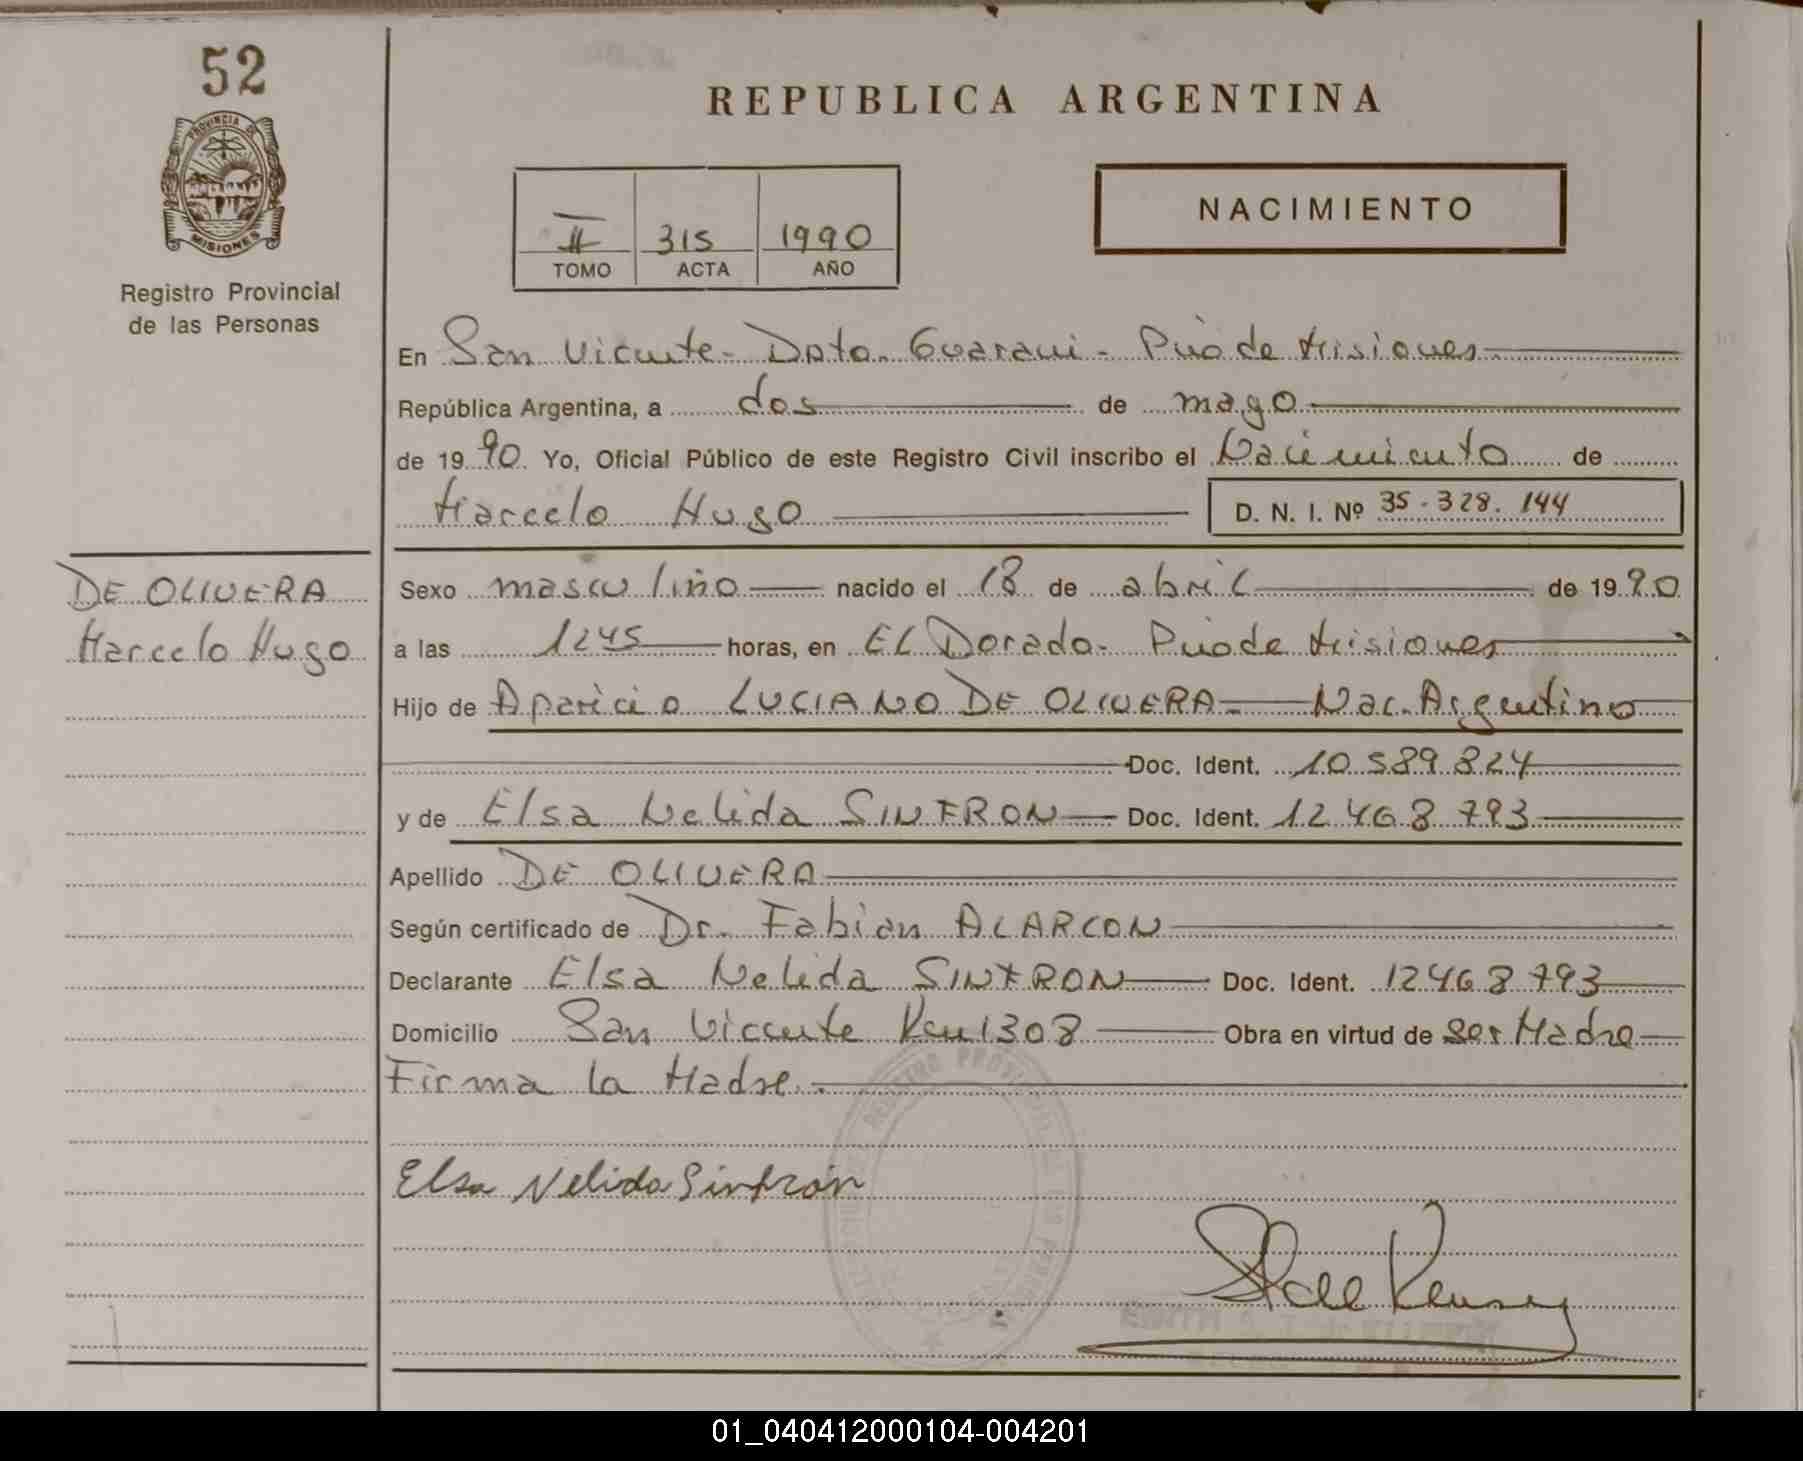 52
PROVINCIA DE
MISIONES
Registro Provincial
de las Personas
REPUBLICA ARGENTINA
II 315 1990
TOMO ACTA AÑO
NACIMIENTO
En San Vicente - Dpto. Guarani - Pcia de Misiones
República Argentina, a dos de mayo
de 1990. Yo, Oficial Público de este Registro Civil inscribo el Nacimiento de
Marcelo Hugo D. N. I. Nº 35.328.144
DE OLIVERA
Marcelo Hugo
Sexo masculino nacido el 18 de abril de 1990
a las 1245 horas, en EL Dorado - Pcia de Misiones
Hijo de Aparicio LUCIANO DE OLIVERA - Nac. Argentino
Doc. Ident. 10.589.824
y de Elsa Nelida SINTRON Doc. Ident. 12.468.793
Apellido DE OLIVERA
Según certificado de Dr. Fabian ALARCON
Declarante Elsa Nelida SINTRON Doc. Ident. 12468793
Domicilio San Vicente Km 1308 Obra en virtud de ser Madre
Firma la Madre.
REGISTRO PROVINCIAL DE LAS PERSONAS
Elsa Nelida Sintrón
01_040412000104-004201